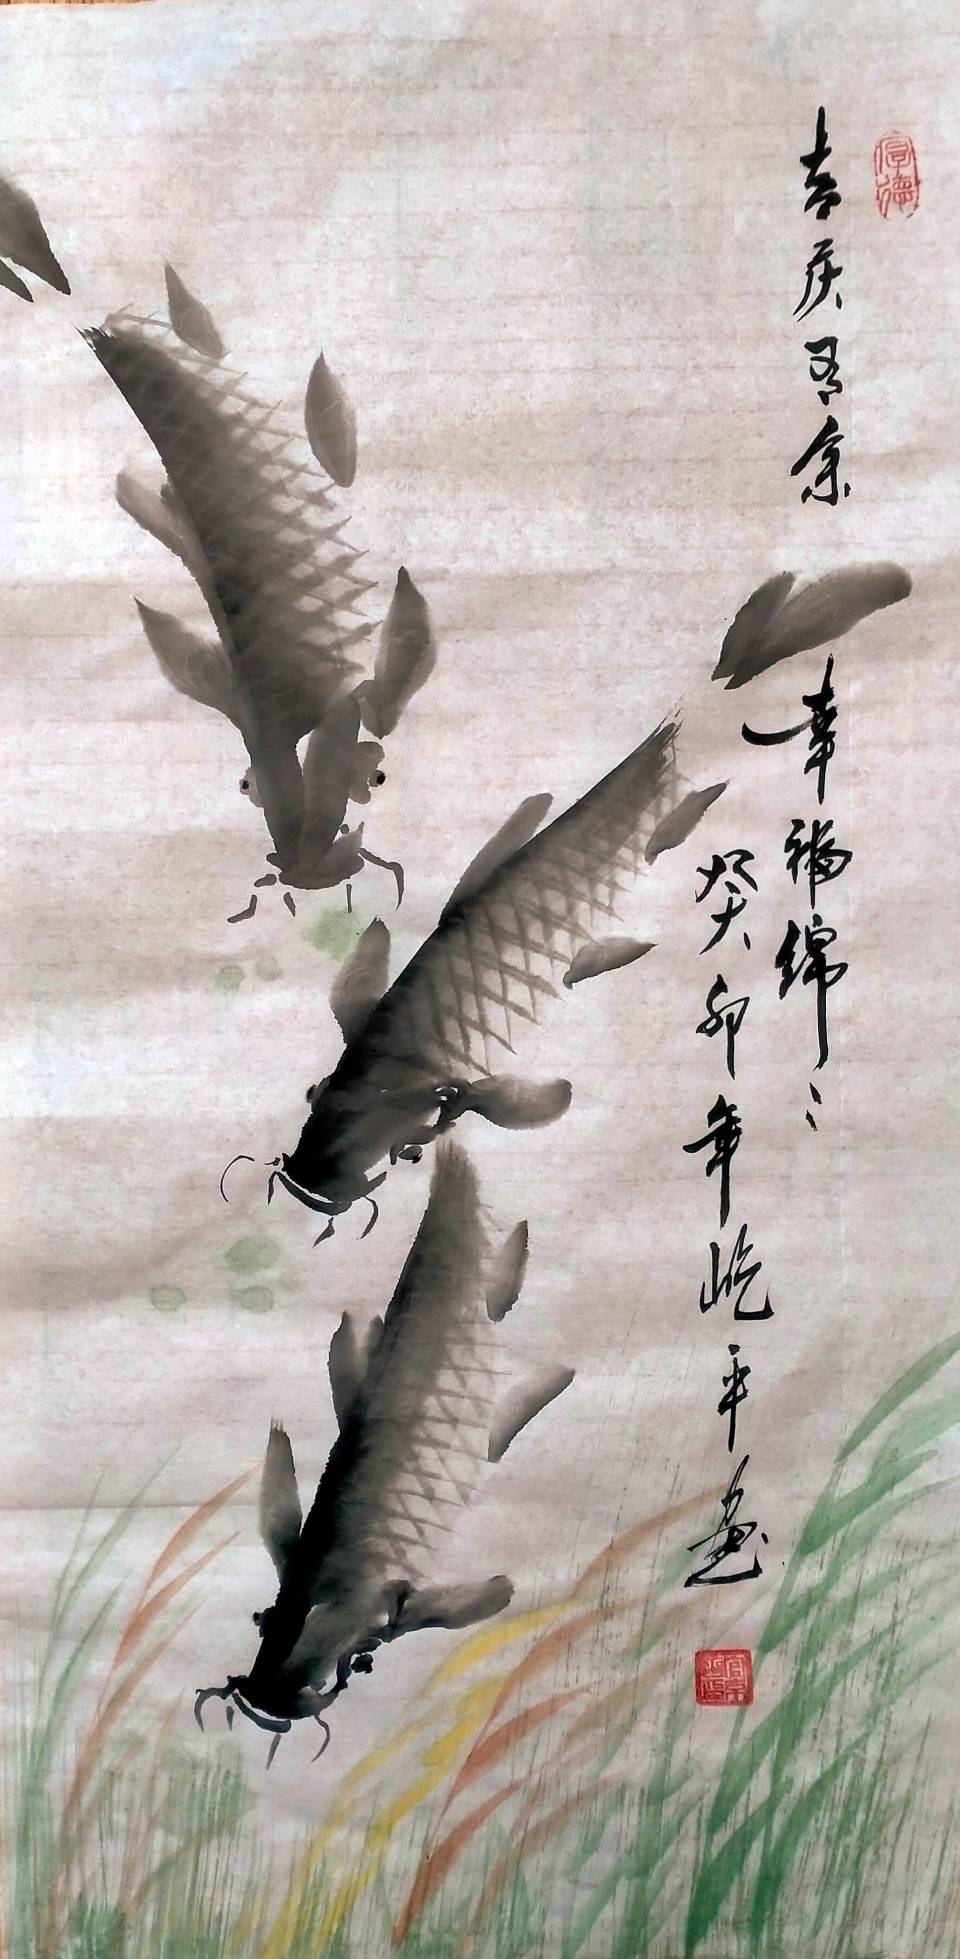 厚德
吉庆有余
幸福绵々
癸卯年屹平画